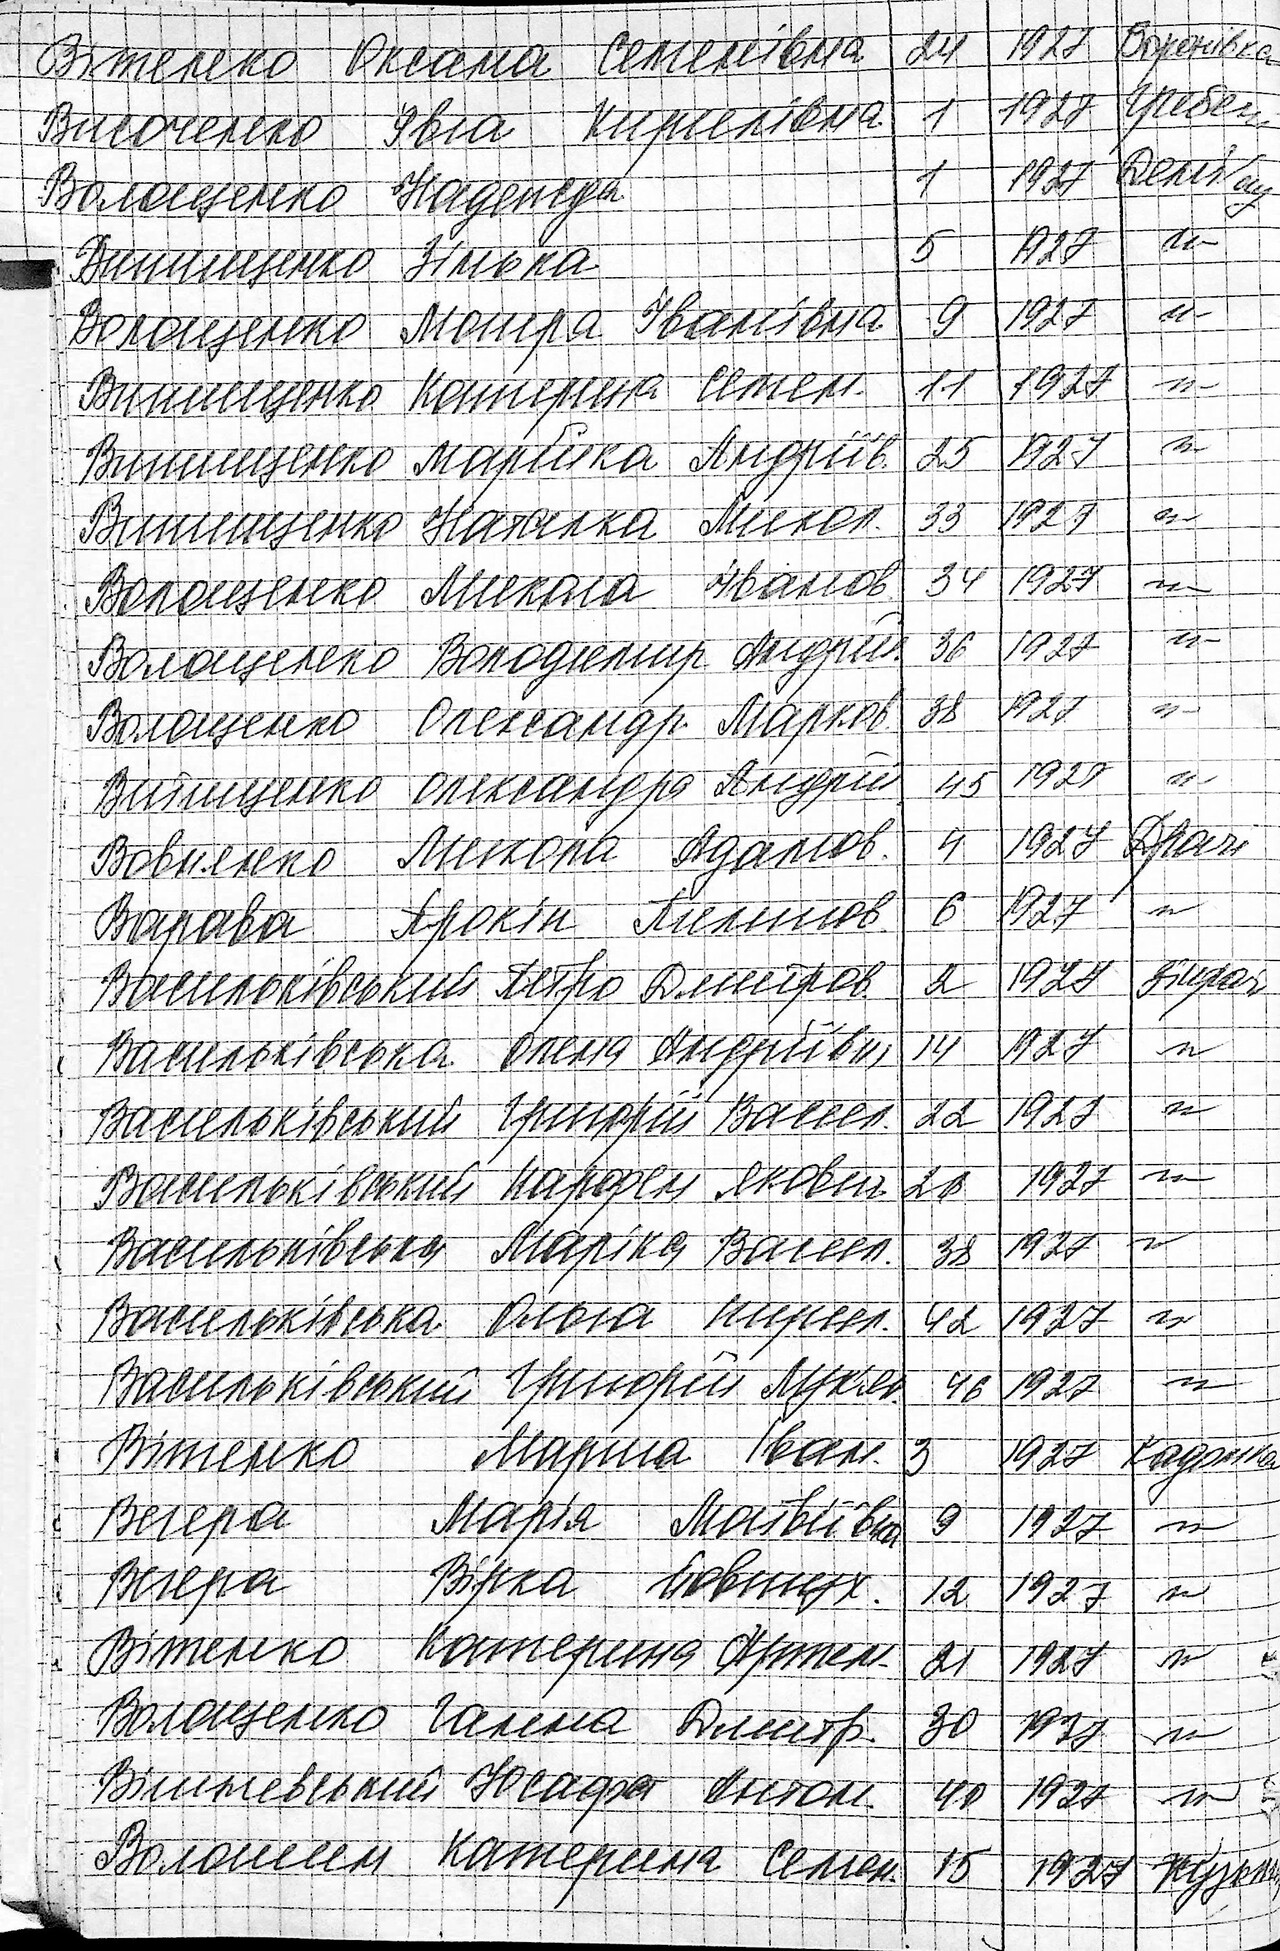 Вітенко Оксана Семенівна 24 1927 Воронівка
Височенко Івга Кирилівна 1 1927 Гребен
Волощенко Надежда 1 1927 Демі
Винищенко Зінька 5 1927 -"-
Волощенко Мотря Іванівна 9 1927 -"-
Винищенко Катерина Семен. 11 1927 -"-
Винищенко Марійка Андріїв. 25 1927 -"-
Винищенко Наталка Микол. 33 1927 -"-
Волощенко Микола Іванов 34 1927 -"-
Волощенко Володимир Андрій. 36 1927 -"-
Волощенко Олександр Марков. 38 1927 -"-
Винищенко Олександра Андрій 45 1927 -"-
Вовченко Микола Адамов. 4 1927 Драчі
Варава Прокіп Пилипов. 6 1927 -"-
Васильківський Петро Дмитров. 2 1927
Васильківська Олена Андріївн 14 1927 -"-
Васильківський Григорій Васил. 22 1927 -"-
Васильківський Парфен Якович 28 1927 -"-
Васильківська Маріка Васил. 38 1927 -"-
Васильківська Ольга Кирил. 42 1927 -"-
Васильківський Григорій Лукян. 46 1927 -"-
Вітенко Марина Іван. 3 1927 Кадомка
Вегера Марія Матвіївна 9 1927 -"-
Вегера Вірка Явтух. 12 1927 -"-
Вітенко Катерина Артем. 21 1927 -"-
Волощенко Галина Дмитр. 30 1927 -"-
Вільчевський Юсафат Антон. 40 1927 -"-
Волошин Катерина Семен. 15 1927 Кузьм